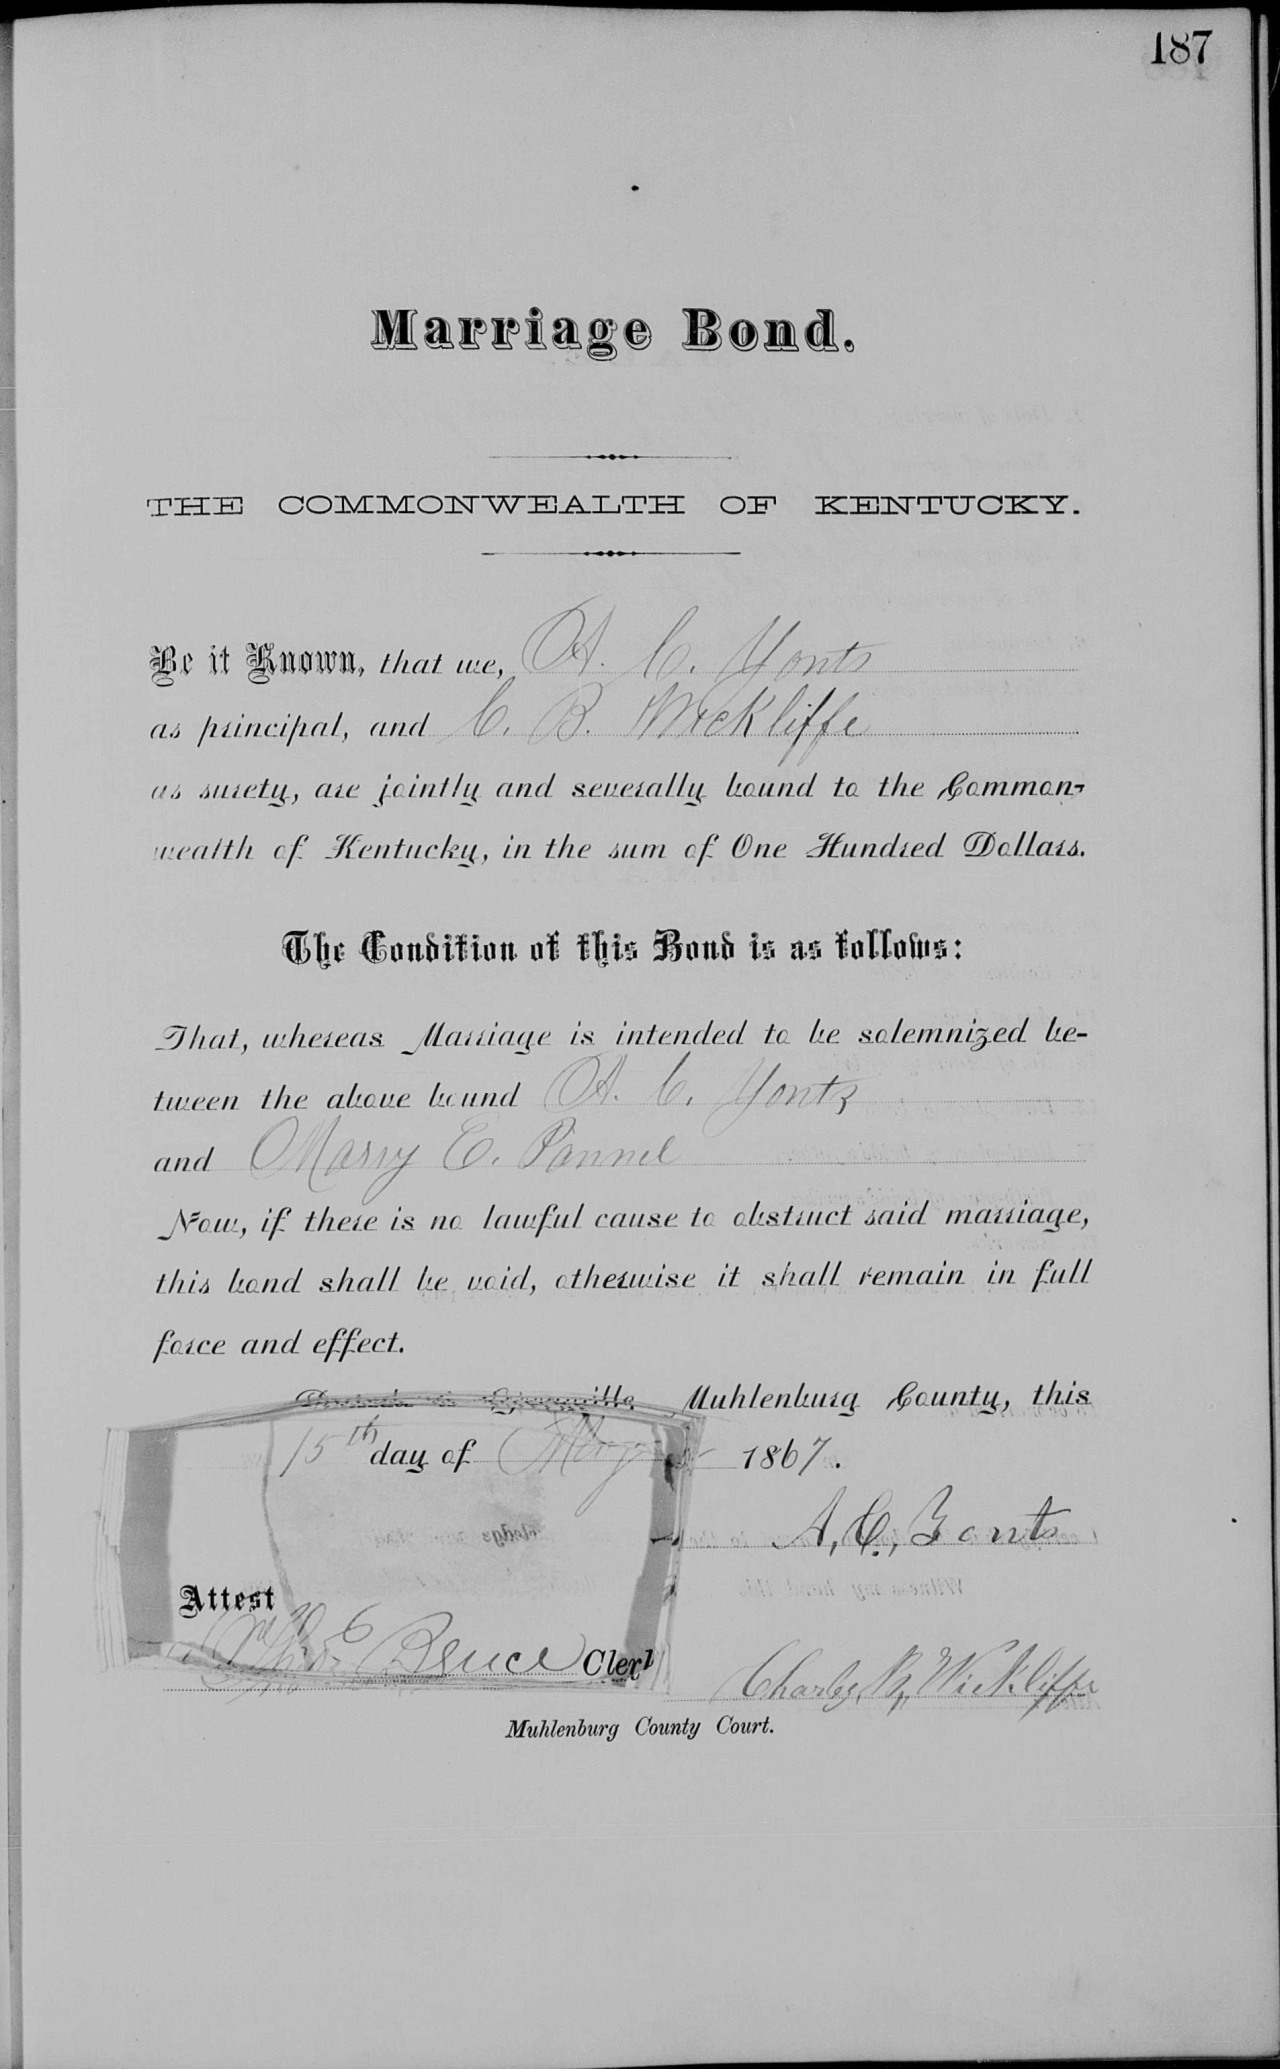 187
Marriage Bond.
THE COMMONWEALTH OF KENTUCKY.
Be it Known, that we, A. C. Yonts
as principal, and C. B. Wickliffe
as surety, are jointly and severally bound to the Common-
wealth of Kentucky, in the sum of One Hundred Dollars.
The Condition of this Bond is as follows:
That, whereas Marriage is intended to be solemnized be-
tween the above bound A. C. Yontz
and Marry E. Pannel
Now, if there is no lawful cause to obstruct said marriage,
this bond shall be void, otherwise it shall remain in full
force and effect.
Greenville, Muhlenburg County, this
15th day of May 1867.
A, C, Yonts
Attest
Bruce Clerk
Charley B, Wickliffe
Muhlenburg County Court.